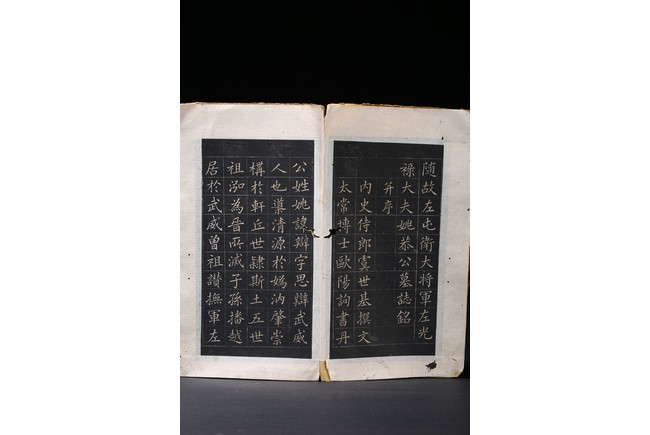 随故左屯衛大将軍左光
祿大夫姚恭公墓誌銘
并序
内史侍郎虞世基撰文
太常博士歐陽詢書丹
公姓姚諱辯字思辯武威
人也導清源於媯汭肇崇
構於軒丘世隸斯土五世
祖泓為晉所滅子孫播越
居於武威曾祖讚撫軍左